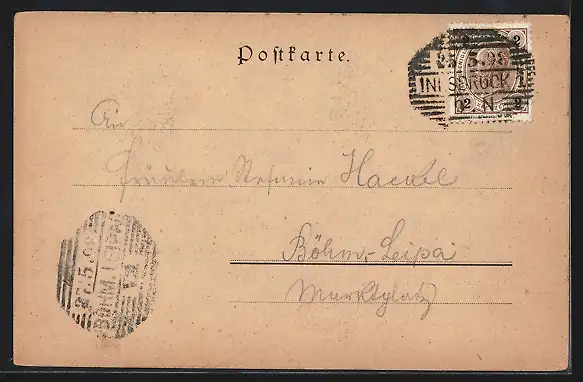 Postkarte.
2 2
5.98
INNSBRUCK 1
2 2
An
Fräulein Stefanie Hackel
Böhm. Leipa
Marktplatz
27.5.98
BÖHM. LEIPA